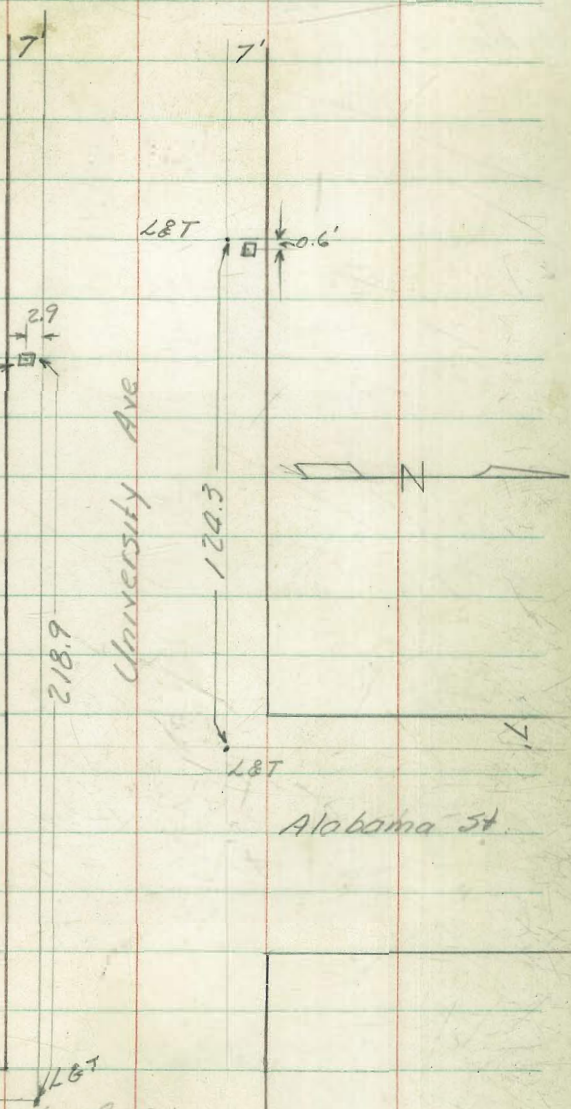 7' 7'
L&T
0.6'
2.9
University Ave
N
124.3
218.9
7'
L&T
Alabama St.
L&T